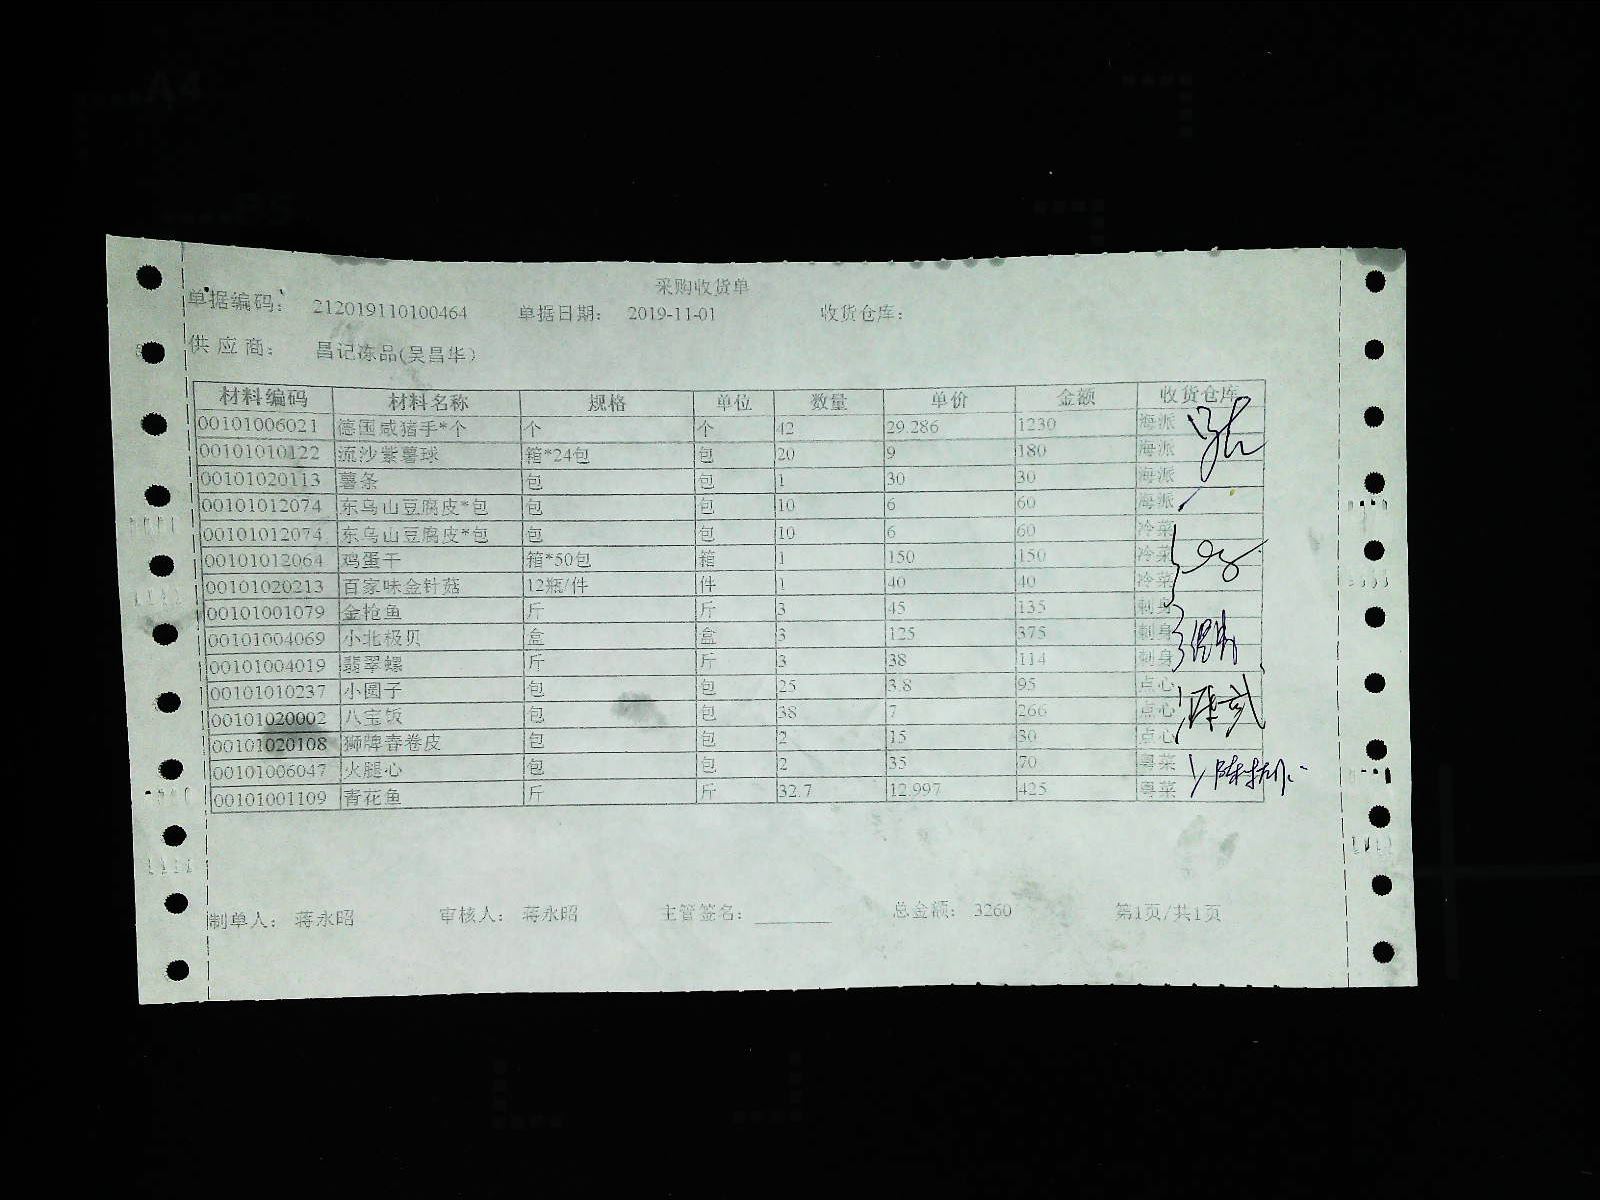 采购收货单
单据编码： 212019110100464 单据日期： 2019-11-01 收货仓库：
供应商： 昌记冻品(吴昌华)
材料编码 材料名称 规格 单位 数量 单价 金额 收货仓库
00101006021 德国咸猪手*个 个 个 42 29.286 1230 海派
00101010122 流沙紫薯球 箱*24包 包 20 9 180 海派
00101020113 薯条 包 包 1 30 30 海派
00101012074 东乌山豆腐皮*包 包 包 10 6 60 海派
00101012074 东乌山豆腐皮*包 包 包 10 6 60 冷菜
00101012064 鸡蛋干 箱*50包 箱 1 150 150 冷菜
00101020213 百家味金针菇 12瓶/件 件 1 40 40 冷菜
00101001079 金枪鱼 斤 斤 3 45 135 刺身
00101004069 小北极贝 盒 盒 3 125 375 刺身
00101004019 翡翠螺 斤 斤 3 38 114 刺身
00101010237 小圆子 包 包 25 3.8 95 点心
00101020002 八宝饭 包 包 38 7 266 点心
00101020108 狮牌春卷皮 包 包 2 15 30 点心
00101006047 火腿心 包 包 2 35 70 粤菜
00101001109 青花鱼 斤 斤 32.7 12.997 425 粤菜
制单人： 蒋永昭 审核人： 蒋永昭 主管签名： 总金额： 3260 第1页/共1页